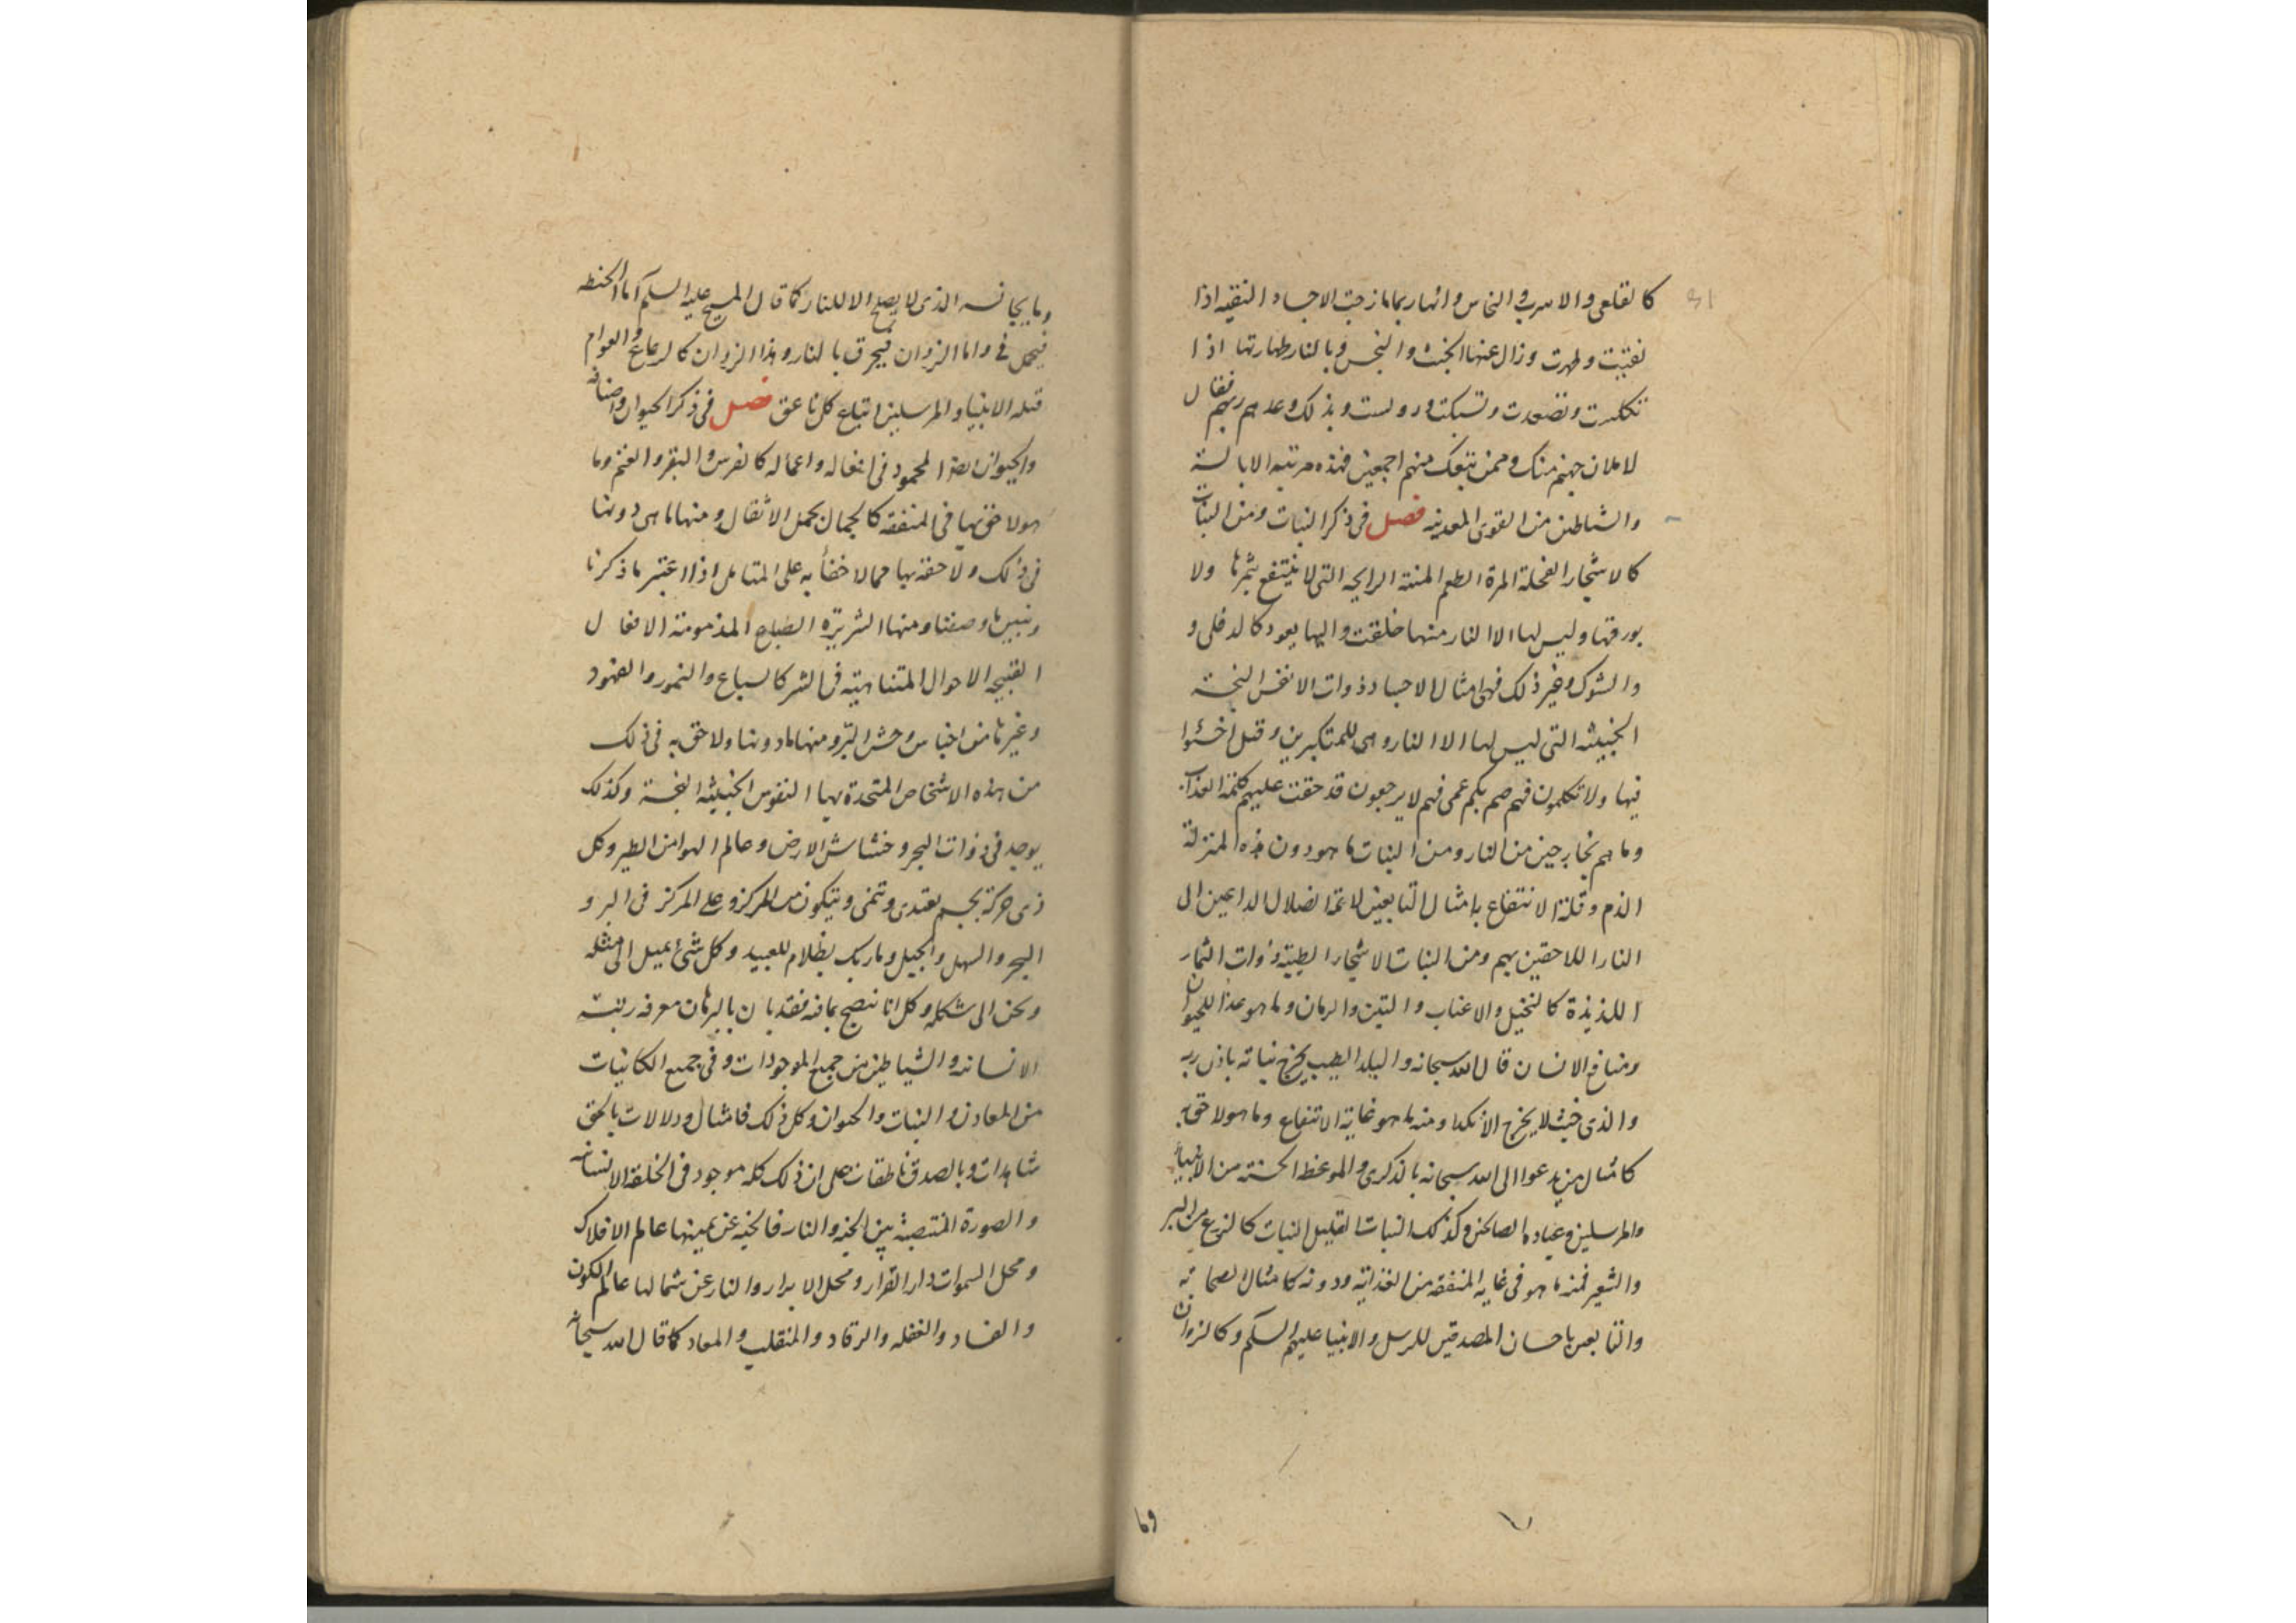 31
كالقلعى والاسرب والنحاس وانها ربما مازجت الاجساد النقيه اذا
نقيت وطهرت وزال عنها الخبث والنجس وبالنار طهارتها اذا
تكلست وتصعدت وتسبكت وبذلك وعدهم ربهم فقال
لاملان جهنم منك وممن تبعك منهم اجمعين فهذه مرتبه الابالسة
والشياطين من القوى المعدنيه فصل فى ذكر النبات ومن النبات
كالاشجار القحلة المرة الطعم المنتنة الرايحه التى لا ينتفع بثمرها ولا
بورقها وليس لها الا النار منها خلقت واليها يعود كالدفلى و
والشوك وغير ذلك فهى امثال الاجساد ذوات الانفس النجسة
الخبيثه التى ليس لها الا النار وهى للمتكبرين وقيل اخسئوا
فيها ولا تكلمون فهم صم بكم عمى فهم لا يرجعون قد حقت عليهم كلمة العذاب
وما هم بخارجين من النار ومن النبات ما هو دون هذه المنزلة
الذم وقلة الانتفاع به امثال التابعين لائمة الضلال الداعين الى
النار اللاحقين بهم ومن النبات الاشجار الطيبة ذوات الثمار
اللذيذة كالنخيل والاعناب والتين والرمان وما هو غذا للحيوان
ومنافع الانسان قال الله سبحانه والبلد الطيب يخرج نباته باذن ربه
والذى خبث لا يخرج الا نكدا ومنه ما هو غاية الانتفاع وما هو لاحق به
كامثال من يدعوا الى الله سبحانه بالذكرى والموعظه الحسنة من الانبياء
والمرسلين وعباده الصالحين وكذلك النبات القليل النبات كالزرع من البر
والشعير فمنه ما هو فى غايه المنفعه من الغذائية ودونه كامثال الصحابه
والتابعين باحسان المصدقين للرسل والانبيا عليهم السلم وكالزوان
وما
وما يجانسه الذى لا يصلح الا للنار كما قال المسيح عليه السلم اما الحنطه
فيحمل فى واما الزوان فيحرق بالنار وهذا الزوان كالرعاع والعوام
قتله الانبيا والمرسلين اتباع كل ناعق فصل فى ذكر الحيوان واصنافه
والحيوان ايضا المحمود فى افعاله واعماله كالفرس والبقر والغنم وما
هو لاحق بها فى المنفعه كالجمال تحمل الاثقال ومنها ما هى دونها
فى ذلك ولاحقه بها مما لا خفأ به على المتامل اذا اعتبر ما ذكرنا
ونبين ما وصفنا ومنها الشريره الطباع المذمومة الافعال
القبيحه الاحوال المتناهيه فى الشر كالسباع والنمور والفهود
وغيرها من اجناس وحش البر ومنها ما دونها ولاحق به فى ذلك
من هذه الاشخاص المتحدة بها النفوس الخبيثه النجسة وكذلك
يوجد فى ذوات البحر وخشاش الارض وعالم الهوا من الطير وكل
ذى حركة بجسم يغتدى وتنمى ويتكون من المركز وعلى المركز فى البر و
البحر والسهل والجبل وما ربك بظلام للعبيد وكل شىء يميل الى مثله
ويحن الى شكله وكل انا ينضح بما فيه فقد بان بالبرهان معرفه رتبة
الانسانيه والشياطين من جميع الموجودات وفى جميع الكائنات
من المعادن والنبات والحيوان وكل ذلك فامثال ودلالات بالحق
شاهدات وبالصدق ناطقات على ان ذلك كله موجود فى الخلقة الانسانيه
والصورة المنتصبة بين الجنه والنار فالجنه عن يمينها عالم الافلاك
ومحل السموات دار القرار ومحل الابرار والنار عن شمالها عالم الكون
والفساد والغفله والرقاد والمنقلب والمعاد كما قال الله سبحانه